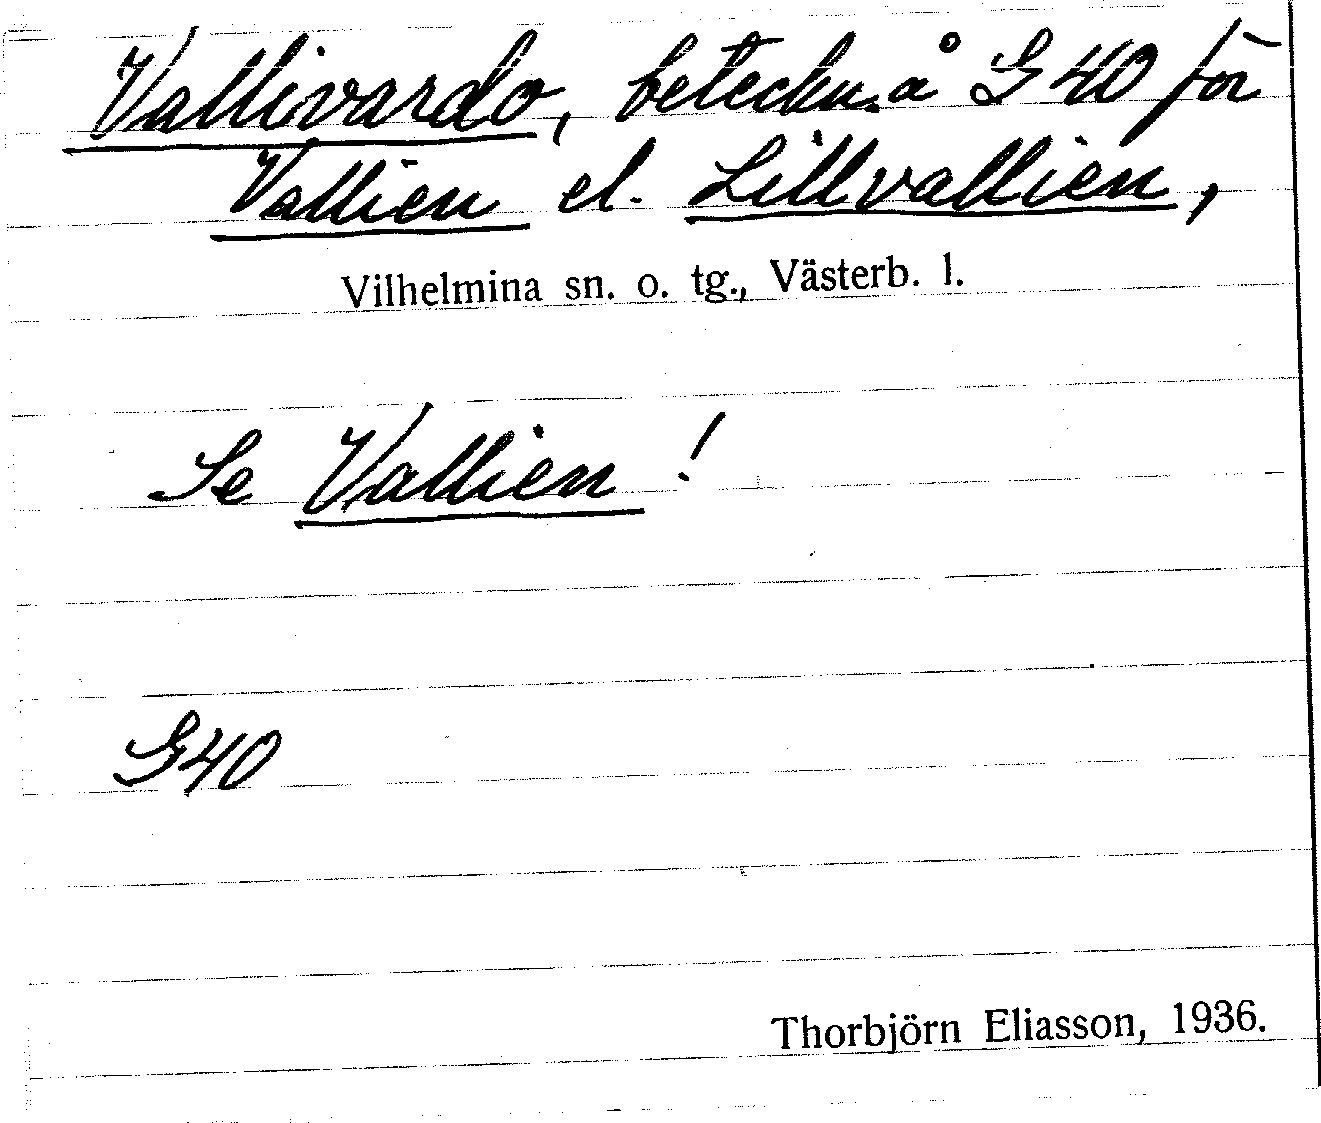 Vallivardo, beteckn. å G 40 för
Vallien el. Lillvallien,
Vilhelmina sn. o. tg., Västerb. l.
Se Vallien!
G40
Thorbjörn Eliasson, 1936.